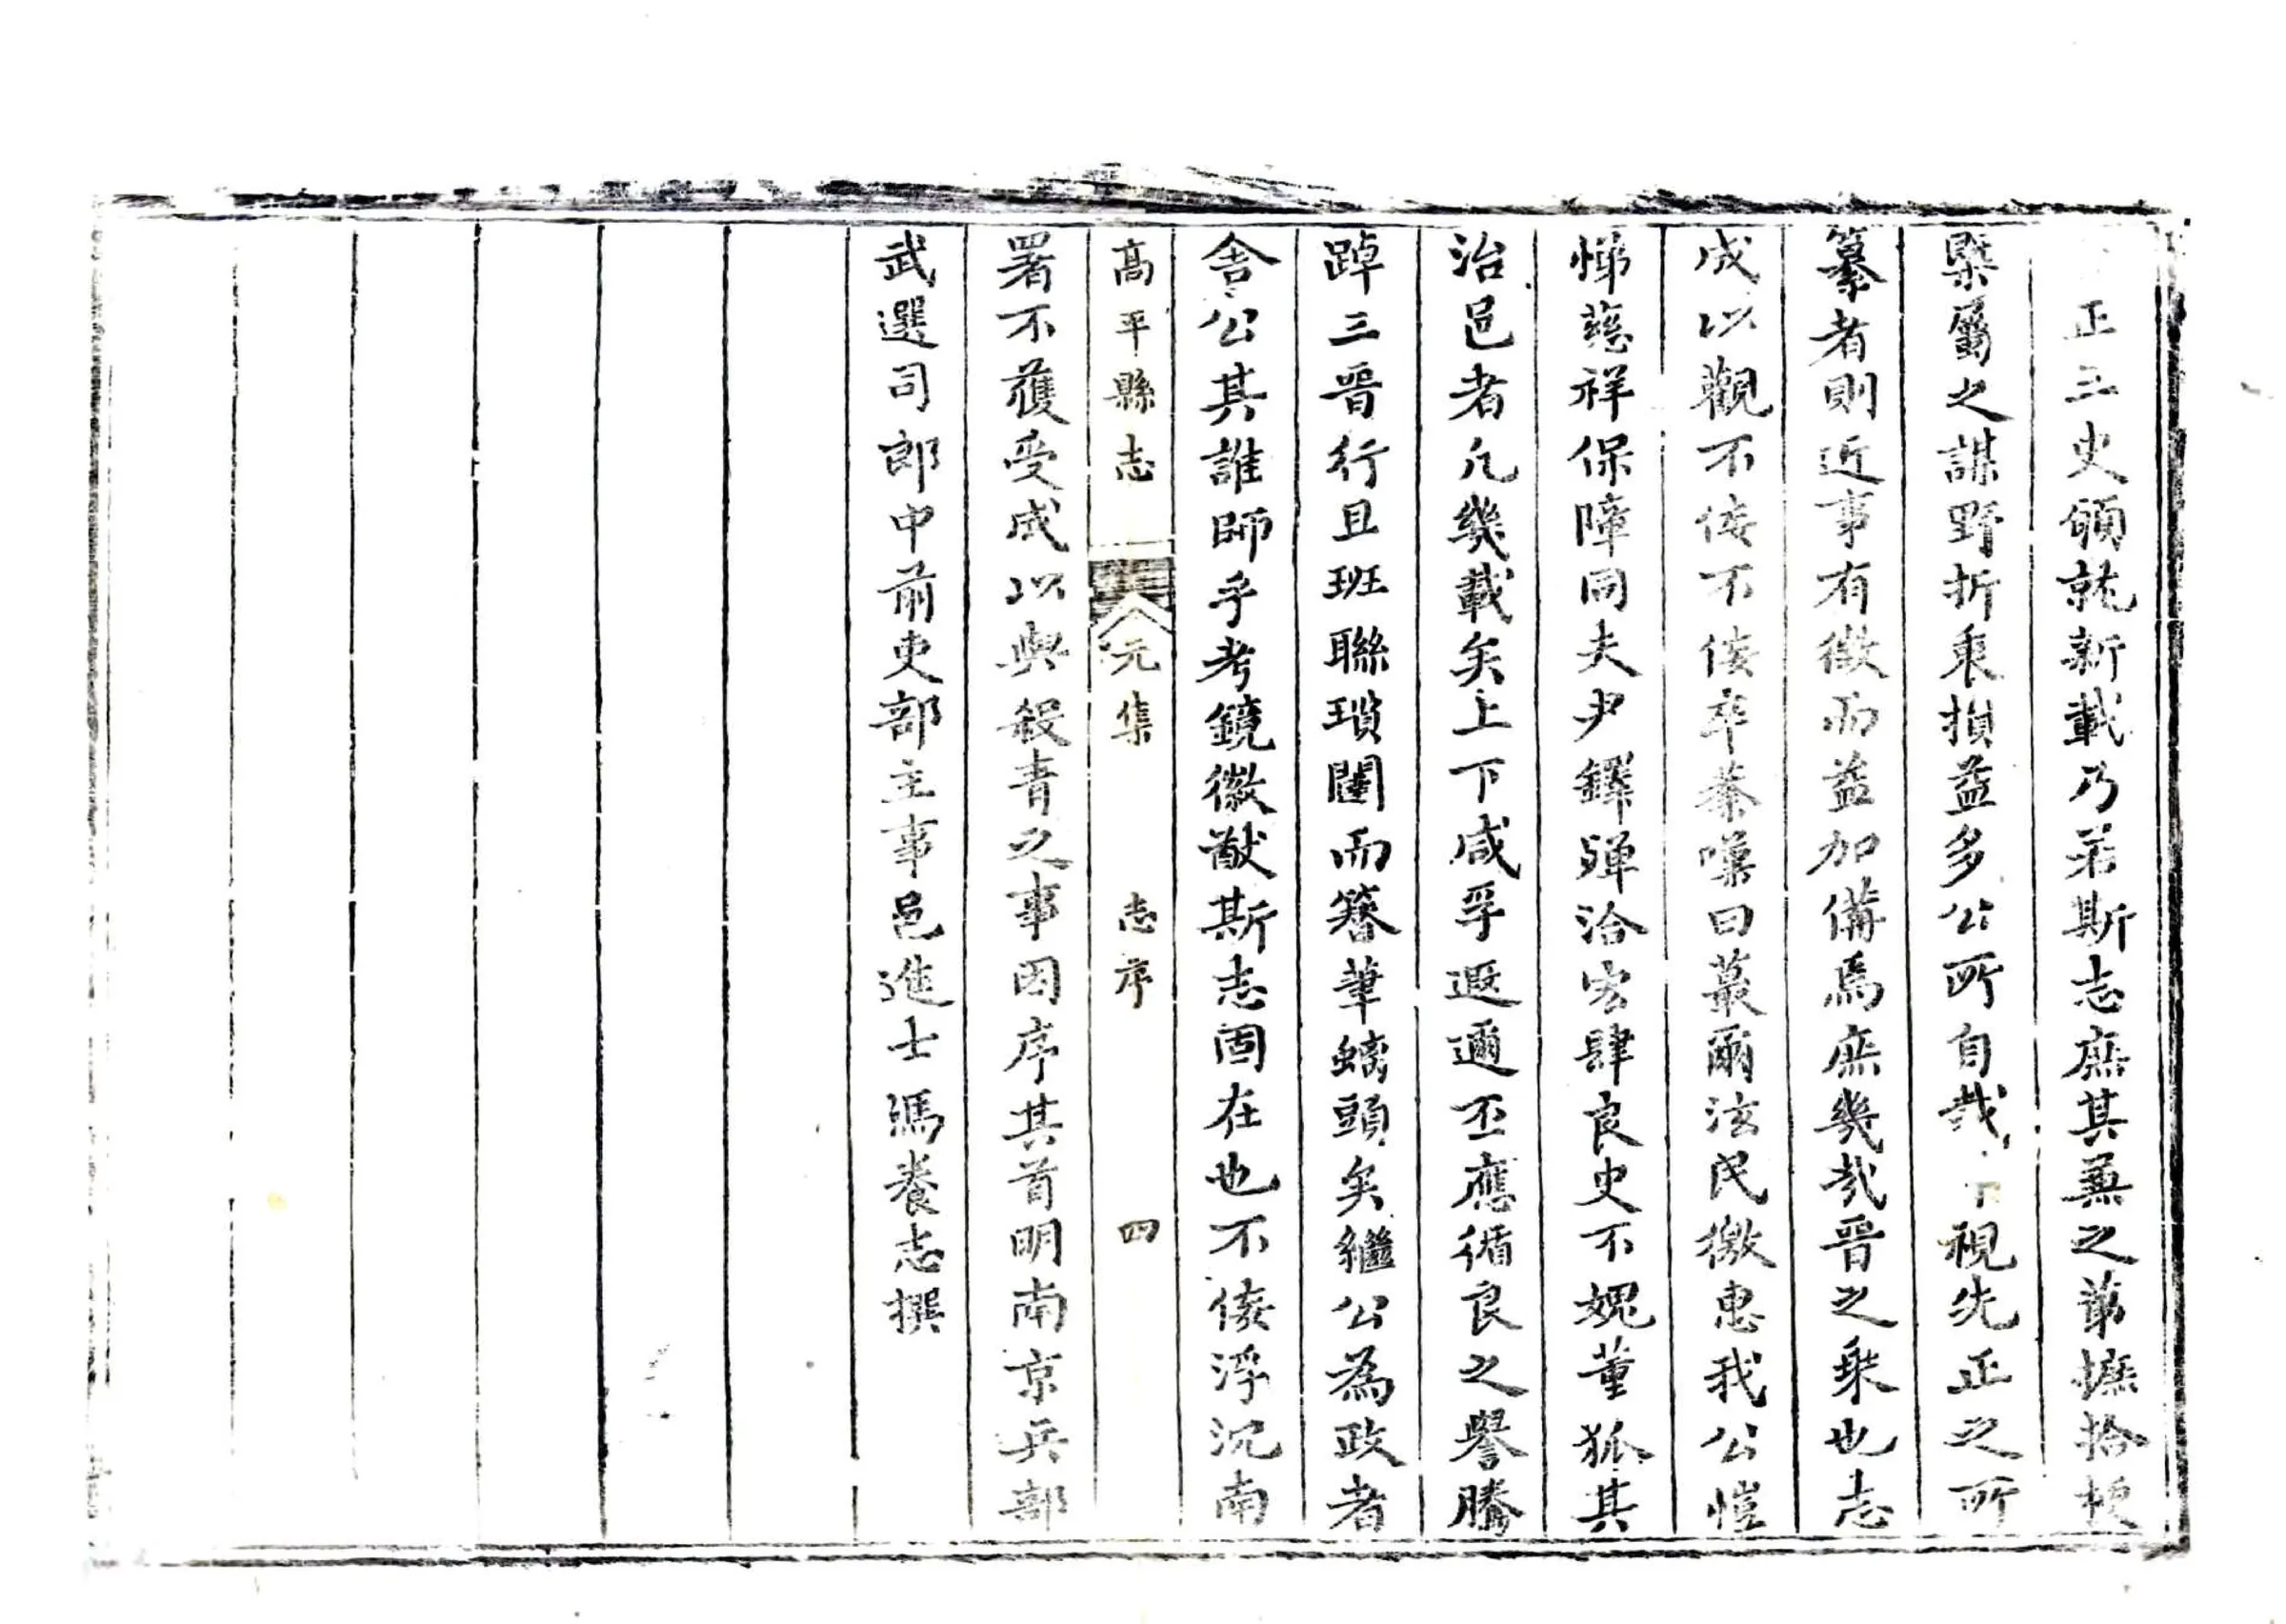 正三史頠就新載乃若斯志庶其兼之第摭拾梗
槩屬之謀野折衷損益多公所自哉視先正之所
纂者則近事有徵而益加備焉庶幾哉晉之乘也志
成以觀不佞不佞卒業嘆曰蕞爾泫民徼惠我公愷
悌慈祥保障同夫尹鐸殫洽宏肆良史不媿董狐其
治邑者凡幾載矣上下咸孚遐邇丕應循良之譽騰
踔三晉行且班聯瑣闥而簪筆螭頭矣繼公為政者
舍公其誰師乎考鏡徽猷斯志固在也不佞浮沉南
高平縣志 元集 志序 四
署不獲受成以與殺青之事因序其首明南京兵部
武選司郎中前吏部主事邑進士馮養志撰